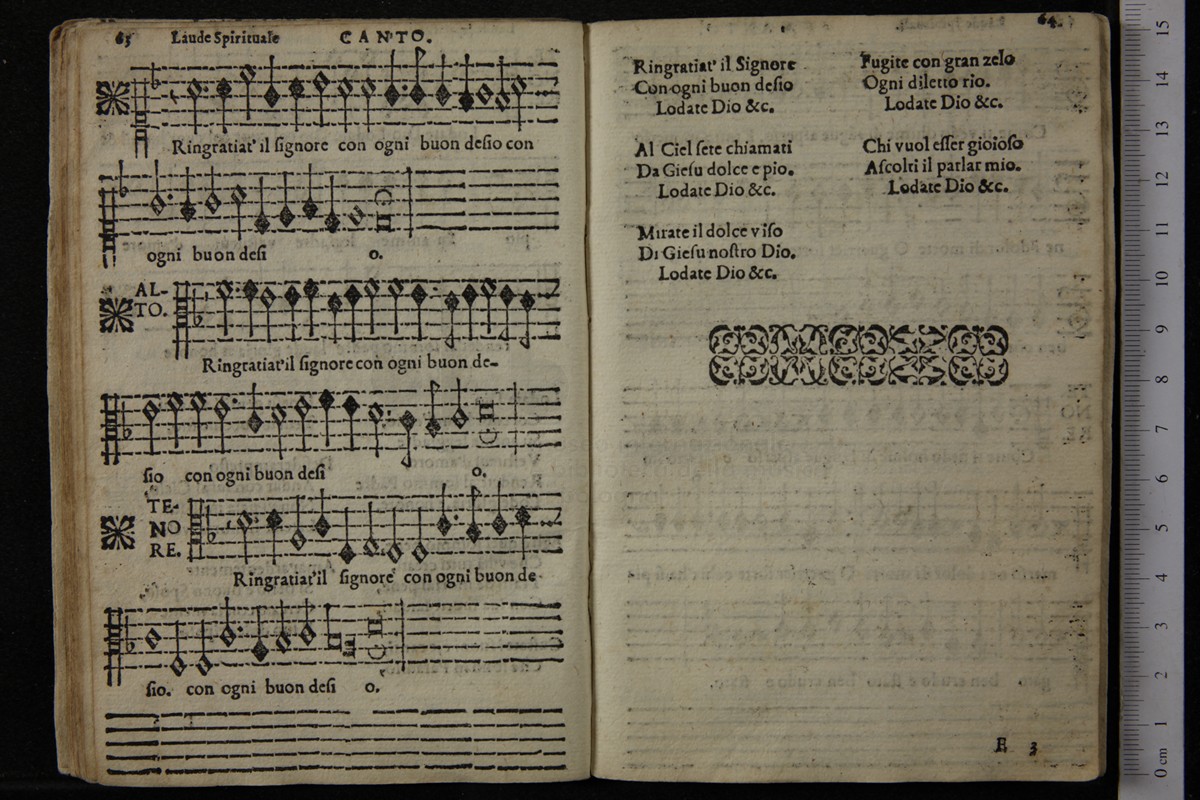 63 Laude Spirituale CANTO.
Ringratiat' il ſignore con ogni buon deſio con
ogni buon deſi o.
AL-
TO.
Ringratiat'il ſignore con ogni buon de-
ſio con ogni buon deſi o.
TE-
NO
RE.
Ringratiat'il ſignore con ogni buon de-
ſio. con ogni buon deſi o.
64
Ringratiat' il Signore
Con ogni buon deſio
Lodate Dio &c.
Al Ciel ſete chiamati
Da Gieſu dolce e pio.
Lodate Dio &c.
Mirate il dolce viſo
Di Gieſu noſtro Dio.
Lodate Dio &c.
Fugite con gran zelo
Ogni diletto rio.
Lodate Dio &c.
Chi vuol eſſer gioioſo
Aſcolti il parlar mio.
Lodate Dio &c.
E 3
15
14
13
12
11
10
9
8
7
6
5
4
3
2
1
0 cm